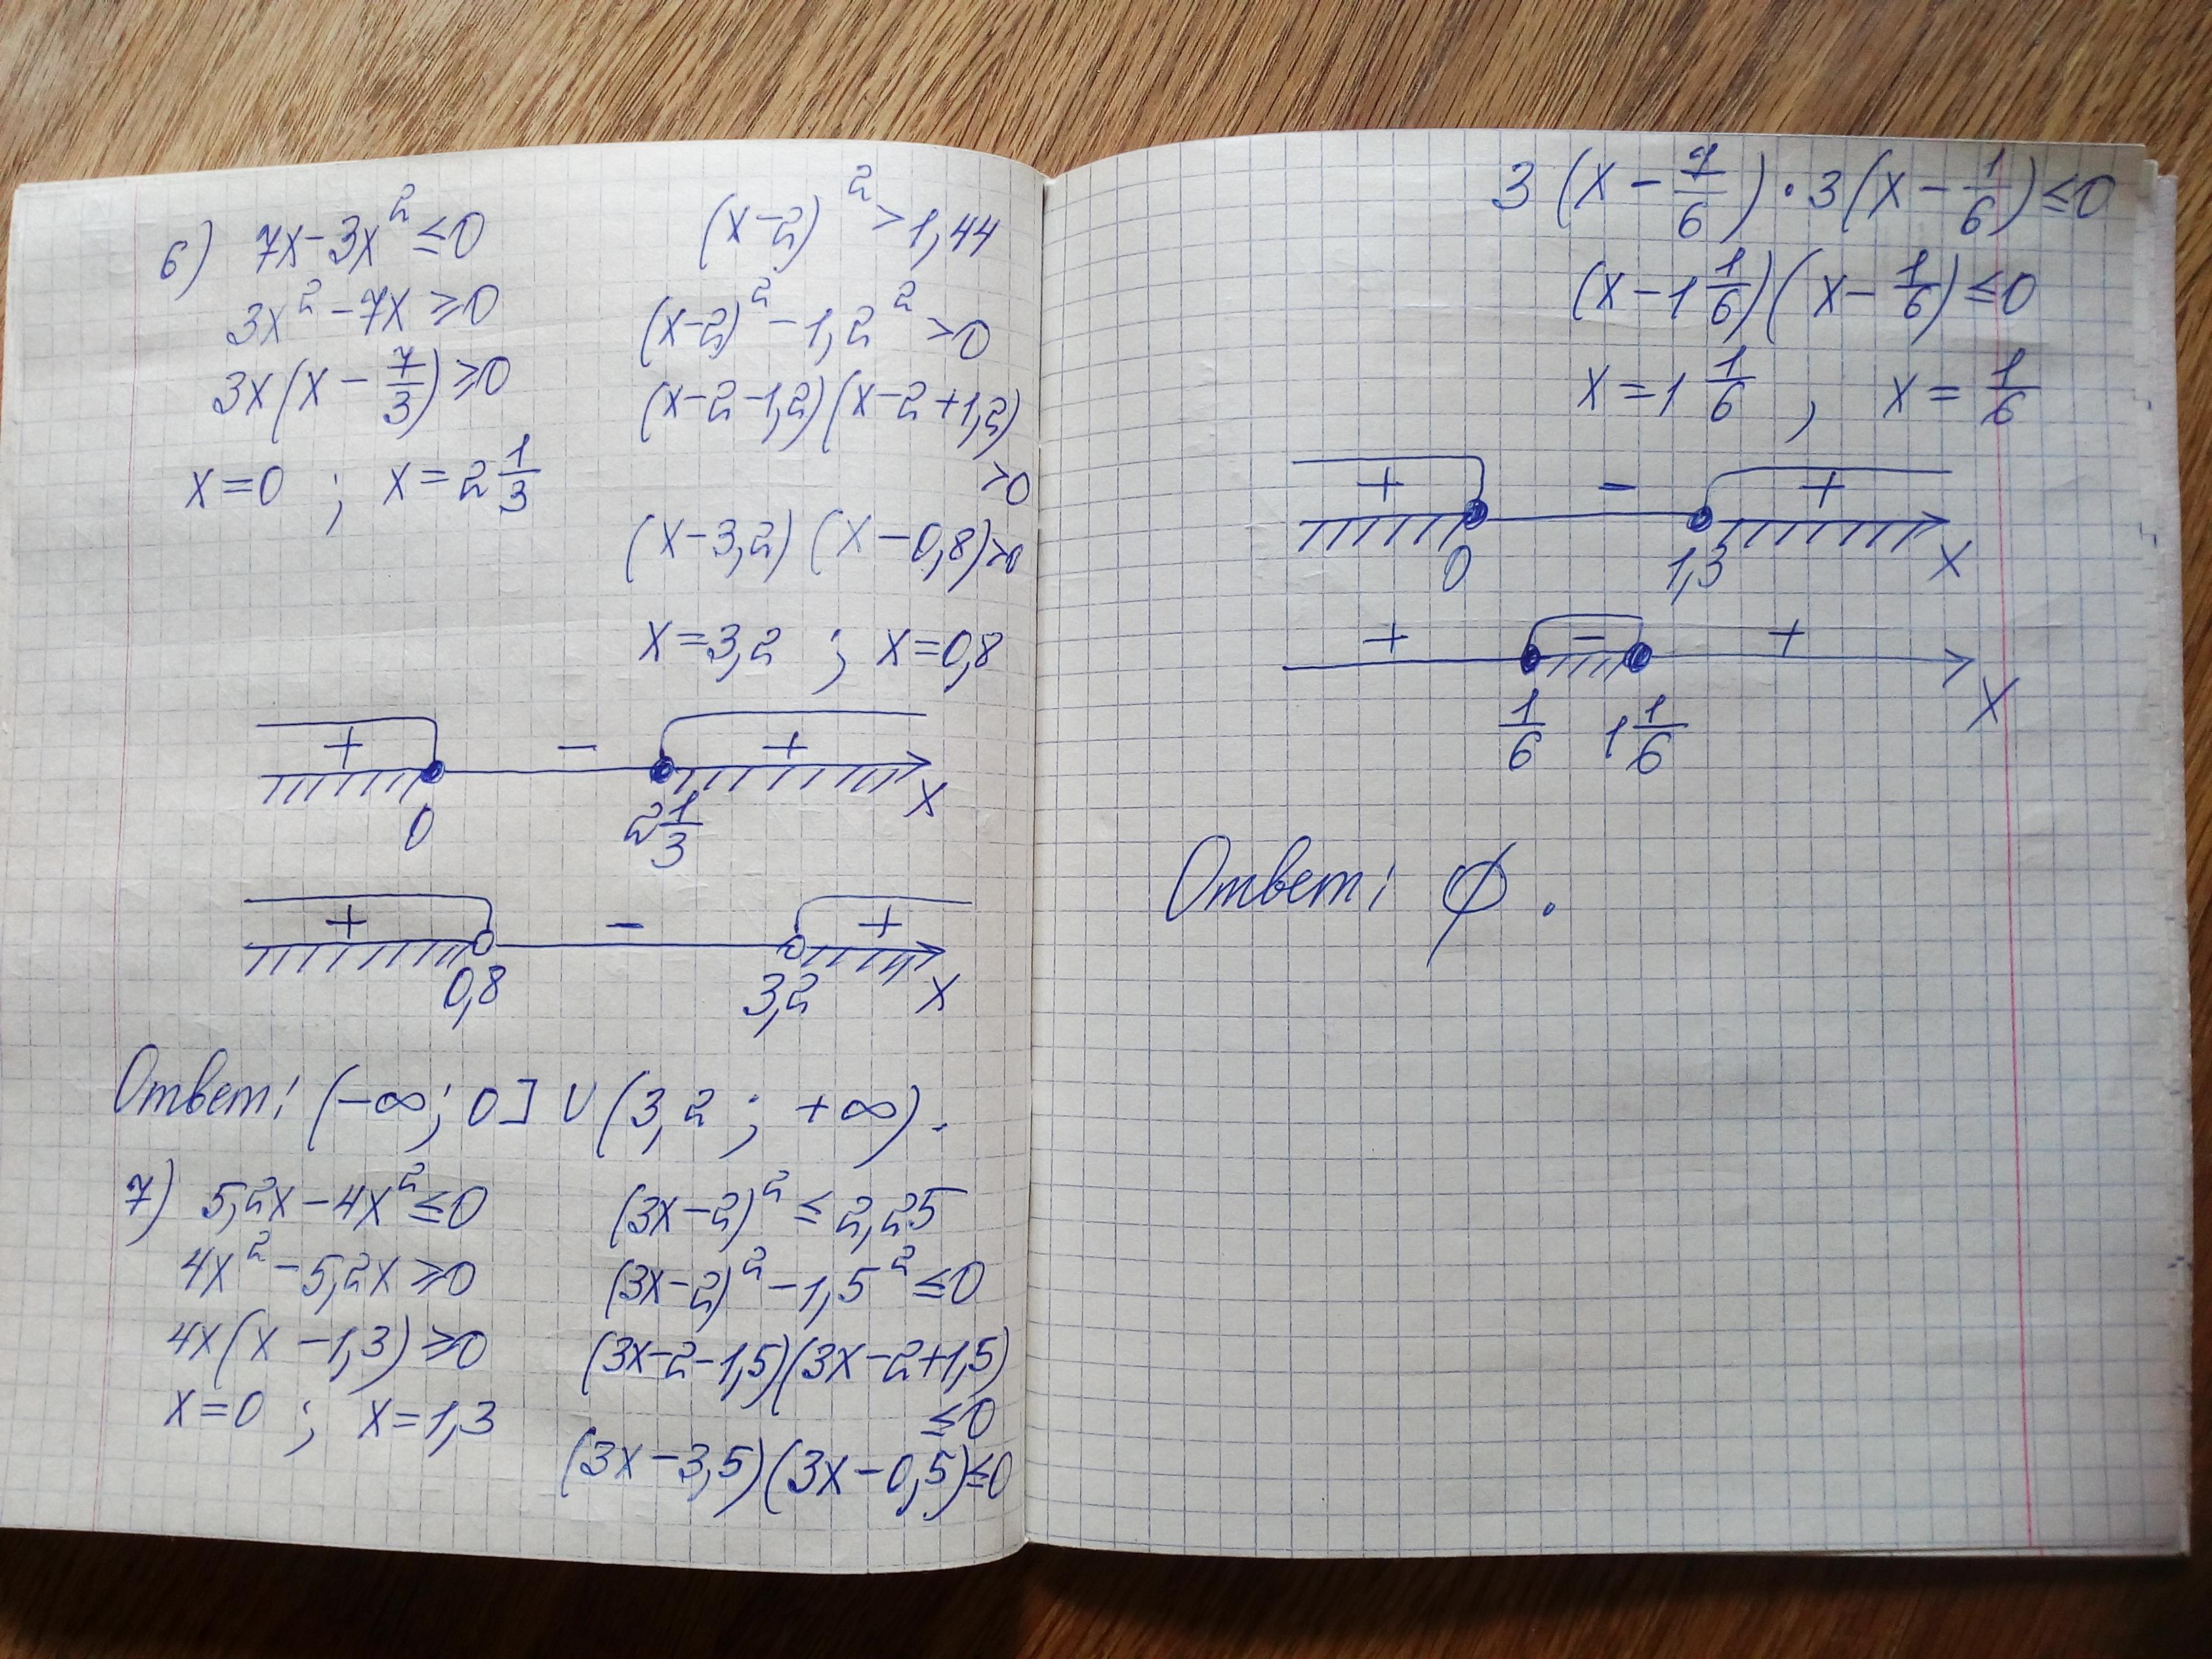 6) 7x-3x²≤0
3x²-7x≥0
3x(x-7/3)≥0
x=0 ; x=2 1/3
(x-2)²>1,44
(x-2)²-1,2²>0
(x-2-1,2)(x-2+1,2)
>0
(x-3,2)(x-0,8)>0
x=3,2 ; x=0,8
+ - +
0 2 1/3 x
+ - +
0,8 3,2 x
Ответ: (-∞; 0] ∪ (3,2 ; +∞).
7) 5,2x-4x²≤0
4x²-5,2x≥0
4x(x-1,3)≥0
x=0 ; x=1,3
(3x-2)²≤2,25
(3x-2)²-1,5²≤0
(3x-2-1,5)(3x-2+1,5)
≤0
(3x-3,5)(3x-0,5)≤0
3(x-7/6)·3(x-1/6)≤0
(x-1 1/6)(x-1/6)≤0
x=1 1/6 , x=1/6
+ - +
0 1,3 x
+ - +
1/6 1 1/6 x
Ответ: ∅.